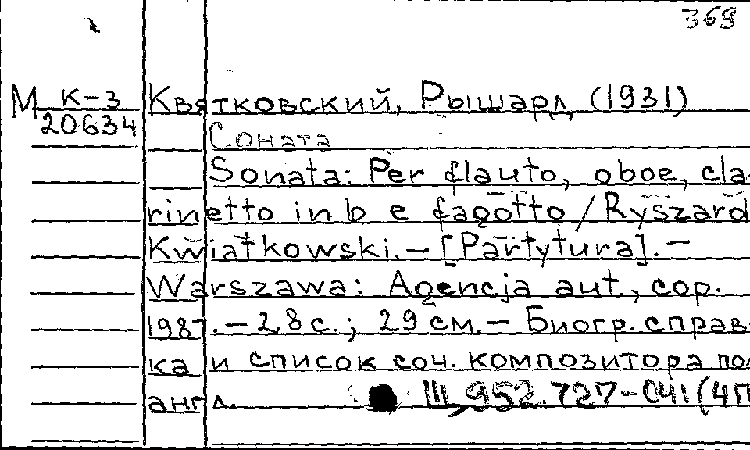 369
М К-3
20634
Квятковский, Рышард (1931)
Соната
Sonata: Per flauto, oboe, cla-
rinetto in b e fagotto / Ryszard
Kwiatkowski. – [Partytura]. –
Warszawa: Agencja aut., cop.
1987. – 28 с.; 29 см. – Биогр. справ-
ка и список соч. композитора
англ. Ш,952.727-041(4П